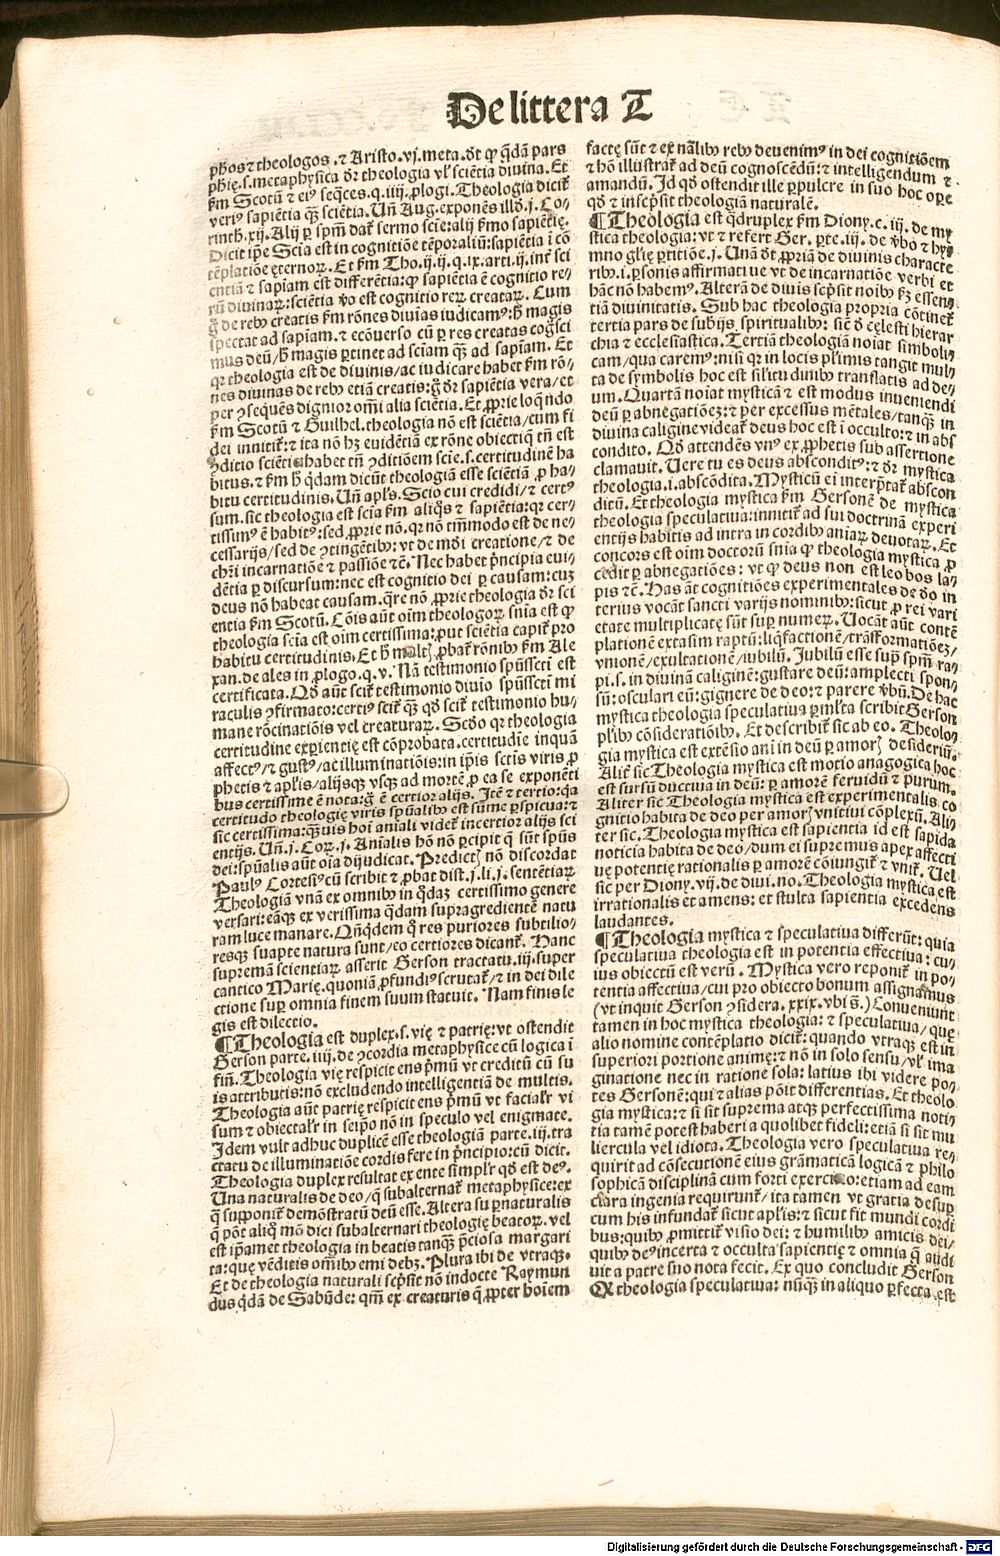 De littera T
pħos ⁊ theologos .⁊ Aristo.vj.meta.dt̄ ꝙ q̄dā pars
pħię.s.metaphysica dr̄ theologia vl' sciētia divina. Et
km̄ Scotū ⁊ eiꝰ seq̄ces.q.iiij.ꝓlogi.Theologia dicit̄
veriꝰ sapiētia qꝫ sciētia. Vn̄ Aug.exponēs illd̄.j.Co⸗
rinth.xij. Alij ꝑ spm̄ dat̄ sermo scīe:alij km̄o sapiētię.
Dicit ip̄e Scīa est in cognitiōe tēporaliū:sapiētia ī cō
tēplatiōe ęternoꝝ. Et km̄ Tho.ij.ij.q.ix.arti.ij.int̄ sci
entiā ⁊ sapīam est differētia:ꝙ sapiētia ē cognitio re⸗
rū divinaꝝ:sciētia ꝟo est cognitio reꝝ creataꝝ. Cum
ḡ de rebꝰ creatis km̄ rōnes divīas iudicamꝰ:h̄ magis
spectat ad sapīam.⁊ ecōuerso cū ꝑ res creatas cogsci
mus deū/h̄ magis ꝑtinet ad sciam qꝫ ad sapīam. Et
qꝛ theologia est de divinis/ac iudicare habet km̄ rō⸗
nes divinas de rebꝰ etiā creatis:ḡ dr̄ sapiētia vera/et
ꝑ ꝯsequēs dignior om̄i alia sciētia. Et ꝓprie loq̄ndo
km̄ Scotū ⁊ Guilhel.theologia nō est sciētia/cum fi
dei innitit̄:⁊ ita nō hꝫ euidētiā ex rōne obiecti:qꝫ tn̄ est
ꝯditio sciētię:habet tn̄ ꝯditiōem scīe.s.certitudinē ha
bitus.⁊ km̄ h̄ q̄dam dicūt theologiā esse sciētiā ꝓ ha⸗
bitu certitudinis. Vn̄ apl's. Scio cui credidi/⁊ certꝰ
sum. sic theologia est scīa km̄ aliq̄s ⁊ sapiētia:qꝛ cer⸗
tissimꝰ ē habitꝰ:sed ꝓprie nō.qꝛ nō tm̄modo est de ne⸗
cessarijs/sed de ꝯtingētibꝰ:vt de mōi creatione/⁊ de
chr̄i incarnatiōe ⁊ passiōe ⁊c̄. Nec habet p̄ncipia eui⸗
dētia ꝑ discursum:nec est cognitio dei ꝑ causam:cuꝫ
deus nō habeat causam.q̄re nō ꝓprie theologia dr̄ sci
entia km̄ Scotū. Cōis aūt oim theologoꝝ snīa est ꝙ
theologia scīa est oim certissima:put sciētia capit̄ pro
habitu certitudinis. Et h̄ mult꜄ ꝓbat̄ rōnibꝰ km̄ Ale
xan.de ales in ꝓlogo.q.v. Nā testimonio spūssctī est
certificata. Qd̄ aūt scit̄ testimonio diuio spūssctī mi
raculis ꝯfirmato:certiꝰ scit̄ qꝫ qd̄ scit̄ testimonio hu⸗
mane rōcinatiōis vel creaturaꝝ. Scd̄o qꝛ theologia
certitudine expiētię est cōprobata.certitudīe inquā
affectꝰ/⁊ gustꝰ/ac illuminatiōis:in ip̄is sctīs viris ꝓ
phetis ⁊ apl'is/alijsqꝫ vsqꝫ ad mortē ꝓ ea se exponēti
bus certissime ē nota:ḡ ē certior alijs. Itē ⁊ tertio:qꝛ
certitudo theologię viris spūalibꝰ est sūme ꝑspicua:⁊
sic certissima:qꝫuis hoī aniali videt̄ incertior alijs sci
entijs. Vn̄.j.Coꝝ.j. Anialis hō nō ꝑcipit q̄ sūt spūs
dei:spūalis aūt oīa dijudicat. Predict꜄ nō discordat
Paulꝰ Cortesiꝰ cū scribit ⁊ ꝓbat dist.j.li.j.sentētiaꝝ
Theologiā vnā ex omnibꝰ in q̄daꝫ certissimo genere
versari:eāqꝫ ex verissima q̄dam supragredientē natu
ram luce manare. Qn̄qdem q̄ res puriores subtilio⸗
resqꝫ suapte natura sunt/eo certiores dicant̄. Hanc
supremā scientiaꝝ asserit Gerson tractatu.iij.super
cantico Marię.quoniā ꝓfundiꝰ scrutat̄/⁊ in dei dile
ctione sup omnia finem suum statuit. Nam finis le
gis est dilectio.
¶Theologia est duplex.s.vię ⁊ patrię:vt ostendit
Gerson parte.iiij.de ꝯcordia metaphysice cū logica ī
fin̄. Theologia vię respicit ens p̄mū vt creditū cū su
is attributis:nō excludendo intelligentiā de multis.
Theologia aūt patrię respicit ens p̄mū vt facialr̄ vi
sum ⁊ obiectalr̄ in seip̄o nō in speculo vel enigmate.
Idem vult adhuc duplicē esse theologiā parte.iij.tra
ctatu de illuminatiōe cordis fere in p̄ncipio:cū dicit.
Theologia duplex resultat ex ente simpl'r qd̄ est deꝰ.
Una naturalis de deo/q̄ subalternat̄ metaphysice:ex
q̄ supponit̄ demōstratū deū esse. Altera supnaturalis
q̄ pōt aliq̄ mō dici subalternari theologię beatoꝝ. vel
est ip̄amet theologia in beatis tanqꝫ p̄ciosa margari
ta:quę vēditis om̄ibꝰ emi debꝫ. Plura ibi de vtraqꝫ.
Et de theologia naturali scp̄sit nō indocte Raymun
dus q̄dā de Sabūde: qm̄ ex creaturis q̄ ꝓpter hoīem
factę sūt ⁊ ex nālibꝰ rebꝰ deuenimꝰ in dei cognitiōem
⁊ hō illustrat̄ ad deū cognoscēdū:⁊ intelligendum ⁊
amandū. Id qd̄ ostendit ille ꝑpulcre in suo hoc oꝑe
qd̄ ⁊ inscp̄sit theologiā naturalē.
¶Theologia est q̄druplex km̄ Diony.c.iij.de my
stica theologia:vt ⁊ refert Ger. ꝑte.iij. de ꝟbo ⁊ hy⸗
mno glię ꝑtitiōe.j. Unā dt̄ ꝓpriā de divinis characte
ribꝰ.i.ꝑsonis affirmatiue vt de incarnatiōe verbi et
hāc nō habemꝰ. Alterā de divīs scp̄sit noībꝰ kꝫ essen⸗
tiā divinitatis. Sub hac theologia propria cōtinet̄
tertia pars de subijs spiritualibꝰ: sic̄ ō cęlesti hierar
chia ⁊ ecclesiastica. Tertiā theologiā noīat simboli⸗
cam/qua caremꝰ:nisi qꝛ in locis pl'imis tangit mul⸗
ta de symbolis hoc est sil'itudinibꝰ translatis ad de⸗
um. Quartā noīat mysticā ⁊ est modus inueniendi
deū ꝑ abnegatiōeꝫ:⁊ per excessus mētales/tanqꝫ in
divina caligine videat̄ deus hoc est ī occulto:⁊ in abs
condito. Qd̄ attendēs vnꝰ ex ꝓphetis sub assertione
clamauit. Uere tu es deus absconditꝰ:⁊ dr̄ mystica
theologia.i.abscōdita. Mysticū ei interp̄tat̄ abscon
ditū. Et theologia mystica km̄ Gersonē de mystica
theologia speculatiua:innitit̄ ad sui doctrinā experi
entijs habitis ad intra in cordibꝰ aniaꝝ deuotaꝝ. Et
concors est oim doctorū snīa ꝙ theologia mystica ꝓ
cedit ꝑ abnegatiōes : vt ꝙ deus non est leo bos la⸗
pis ⁊c̄. Has āt cognitiōes experimentales de deo in
terius vocāt sancti varijs nominibꝰ:sicut ꝓ rei vari
etate multiplicatę sūt sup numeꝝ. Uocāt aūt contē
plationē extasim raptū:liq̄factionē/trāsformatiōeꝫ/
vnionē/exultationē/iubilū. Jubilū esse sup̄ spm̄ ra⸗
pi.s.in divinā caliginē:gustare deū:amplecti spon⸗
sū:osculari eū:gignere de deo:⁊ parere ꝟbū. De hac
mystica theologia speculatiua ꝑml'ta scribit Gerson
pl'ibꝰ cōsideratiōibꝰ. Et describit̄ sic ab eo. Theolo⸗
gia mystica est extēsio ani in deū ꝑ amor꜄ desideriū.
Alit̄ sic Theologia mystica est motio anagogica hoc
est sursū ductiua in deū: ꝑ amorē feruidū ⁊ purum.
Aliter sic Theologia mystica est experimentalis co
gnitio habita de deo per amor꜄ vnitiui cōplexū. Ali⸗
ter sic. Theologia mystica est sapientia id est sapida
noticia habita de deo/dum ei supremus apex affecti
uę potentię rationalis ꝑ amorē cōiungit̄ ⁊ vnit̄. Uel
sic per Diony.vij.de diui.no. Theologia mystica est
irrationalis et amens: et stulta sapientia excedens
laudantes.
¶Theologia mystica ⁊ speculatiua differūt: quia
speculatiua theologia est in potentia effectiua: cu⸗
ius obiectū est verū. Mystica vero reponit̄ in po⸗
tentia affectiua/cui pro obiecto bonum assignamus
(vt inquit Gerson ꝯsidera. xxix.vbi s̄.) Conueniunt
tamen in hoc mystica theologia: ⁊ speculatiua/ quę
alio nomine contēplatio dicit̄: quando vtraqꝫ est in
superiori portione animę:⁊ nō in solo sensu/vl' ima
ginatione nec in ratione sola: latius ibi videre po⸗
tes Gersonē:qui ⁊ alias pōit differentias. Et theolo
gia mystica:⁊ si sit suprema atqꝫ perfectissima noti⸗
tia tamē potest haberi a quolibet fideli:etiā si sit mu
liercula vel idiota. Theologia vero speculatiua re⸗
quirit ad cōsecutionē eius grāmaticā logicā ⁊ philo
sophicā disciplinā cum forti exercitio:etiam ad eam
clara ingenia requirunt̄/ita tamen vt gratia desup
cum his infundat̄ sicut apl'is:⁊ sicut fit mundi cordi
bus:quibꝰ ꝓmittit̄ visio dei: ⁊ humilibꝰ amicis dei/
quibꝰ deꝰ incerta ⁊ occulta sapientię ⁊ omnia q̄ audi
uit a patre suo nota fecit. Ex quo concludit Gerson
Q̄ theologia speculatiua: nūqꝫ in aliquo ꝑfecta est
Digitalisierung gefördert durch die Deutsche Forschungsgemeinschaft - DFG